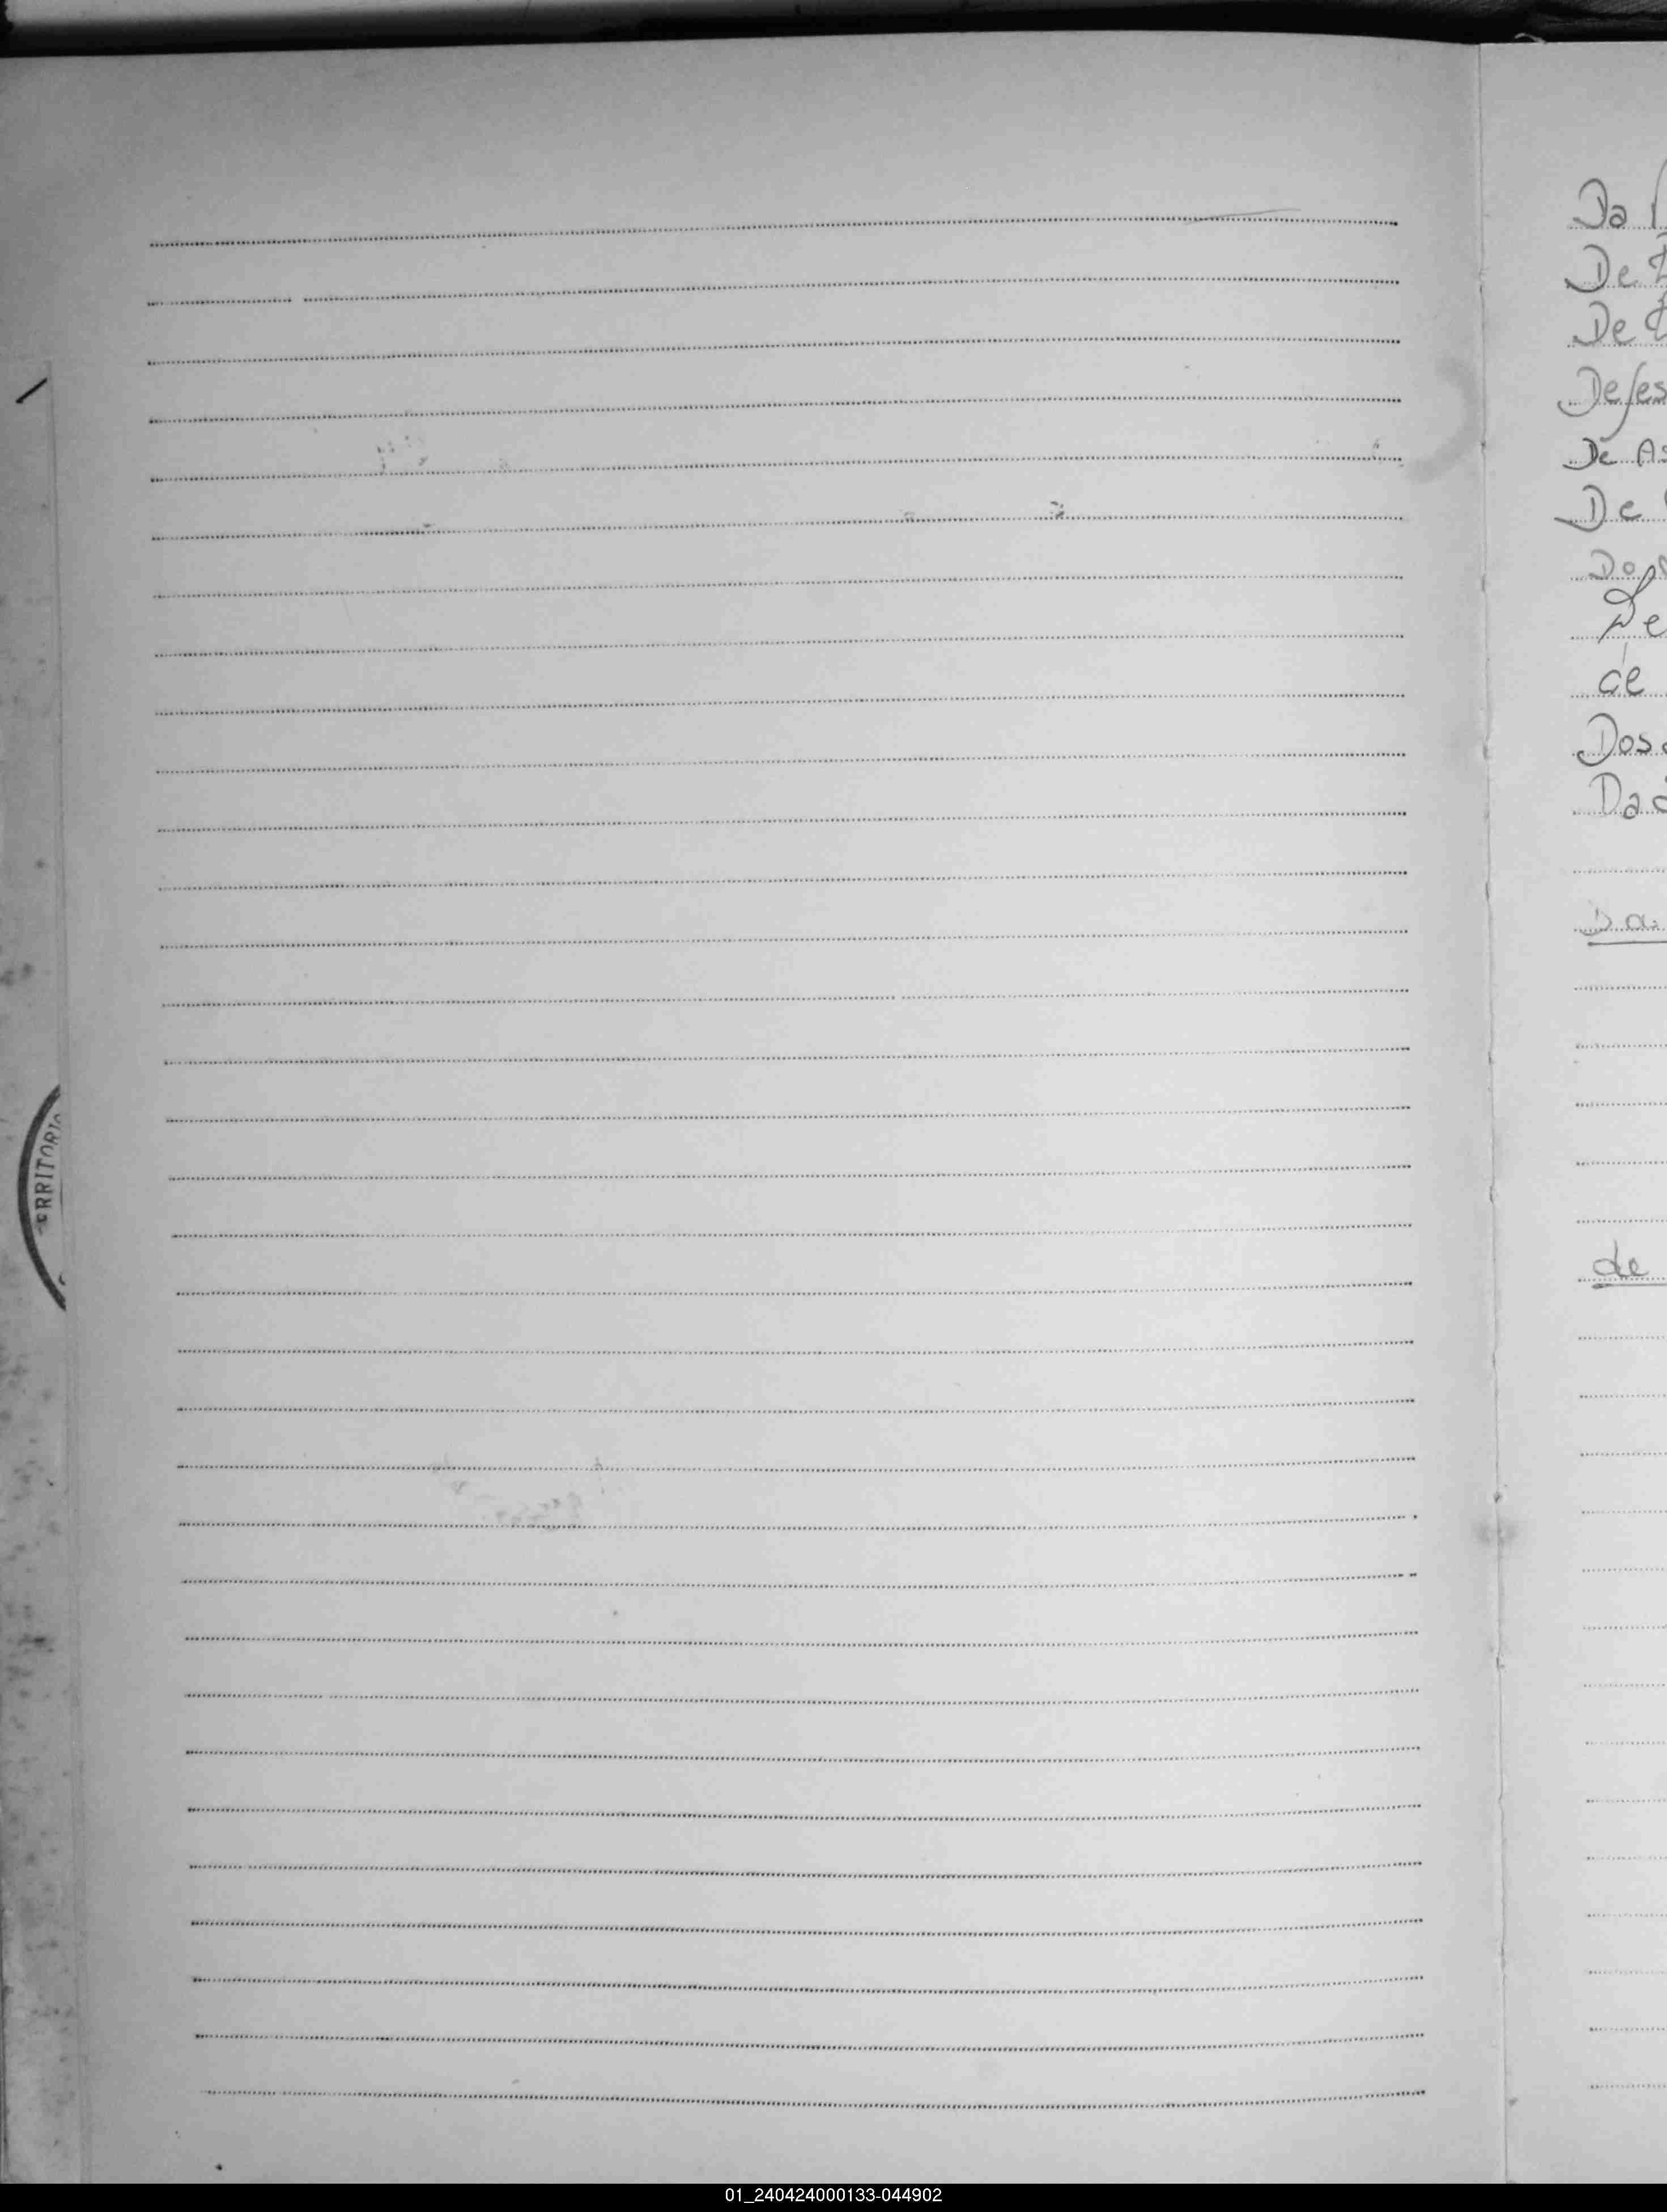 ERRITORIA
Da
De
De
Defes
De As
De
Do
De
de
Dos
Da
Da
de
01_240424000133-044902